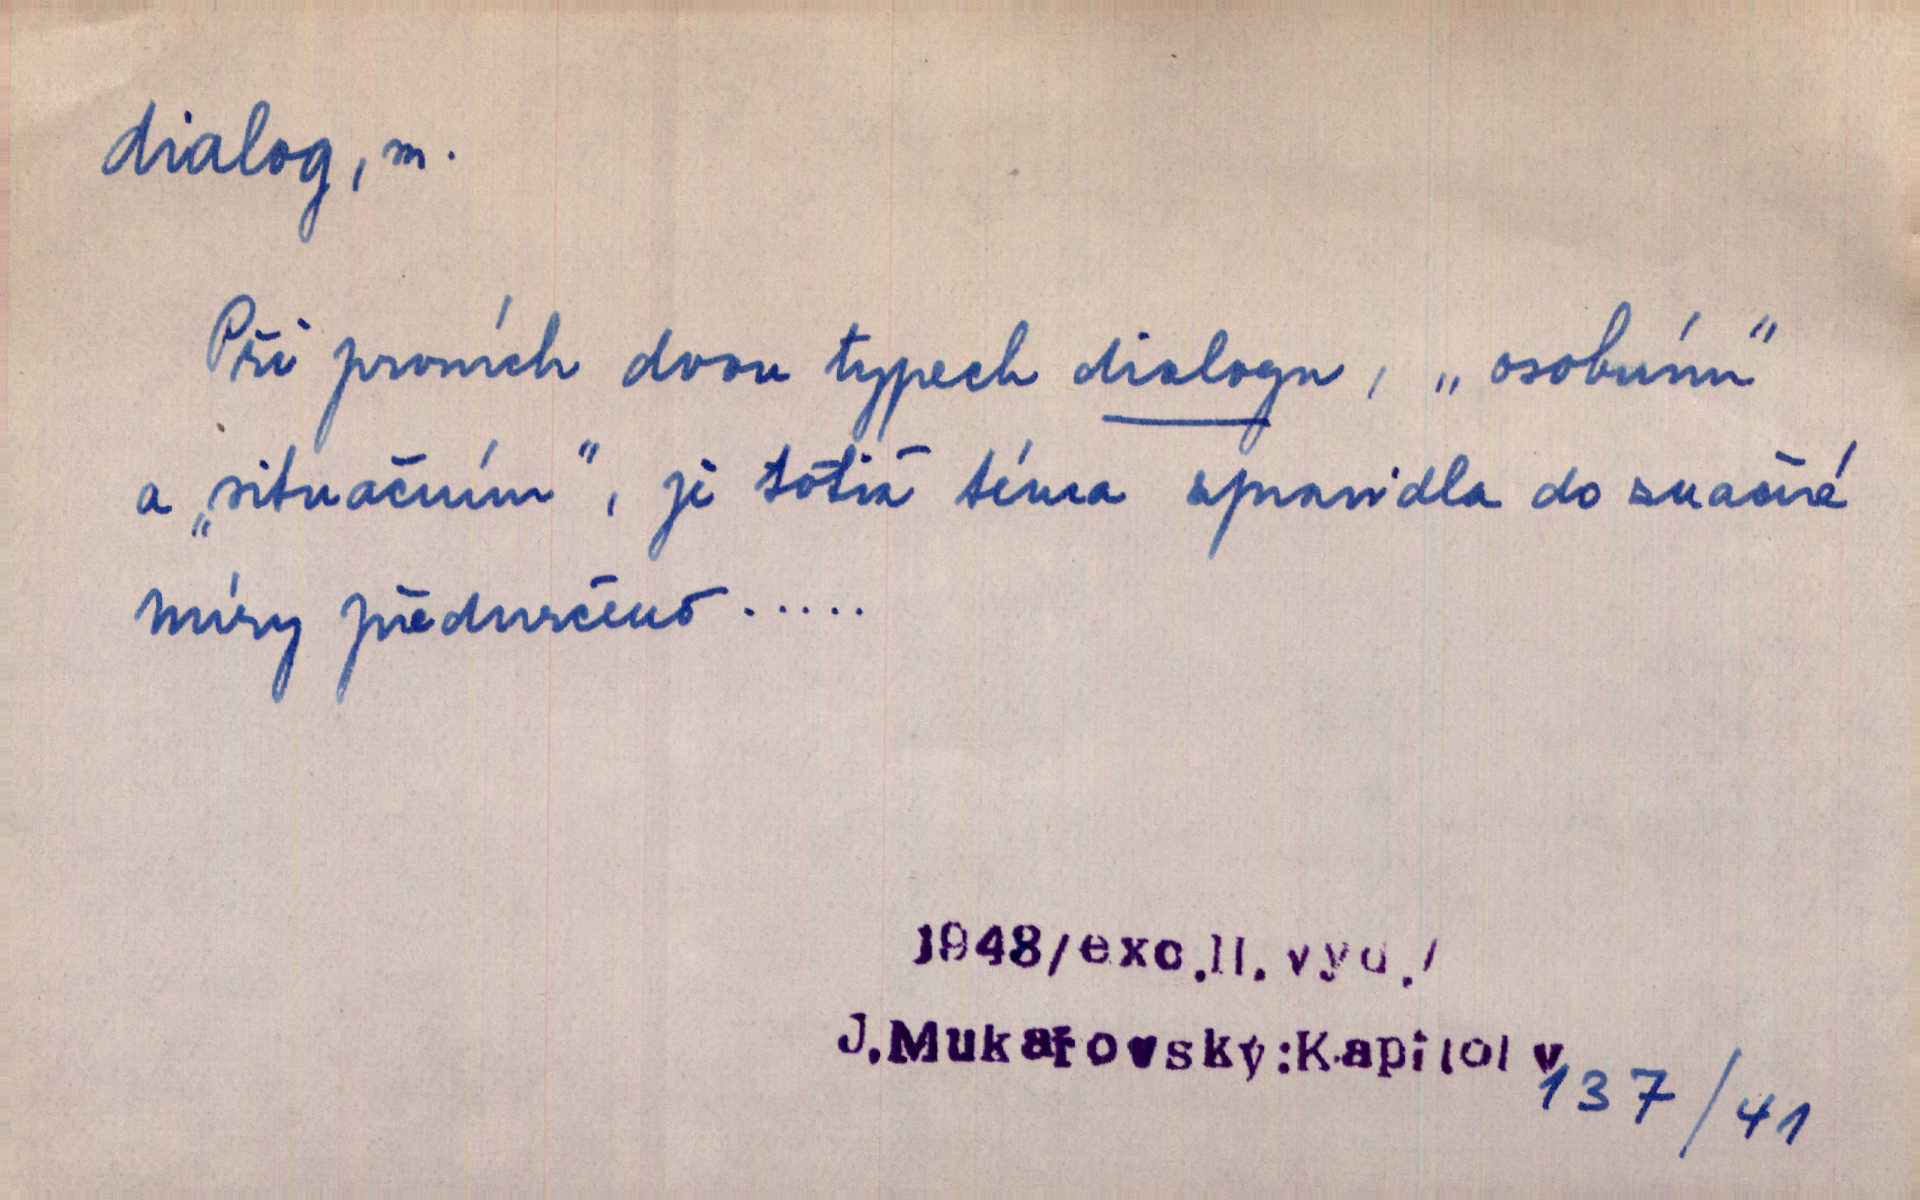 dialog, m.
Při prvních dvou typech dialogu, „osobním“
a „situačním“, je totiž téma zpravidla do značné
míry předurčeno.....
1948/exc.II. vyd./
J.Mukařovský:Kapitol v
137/41